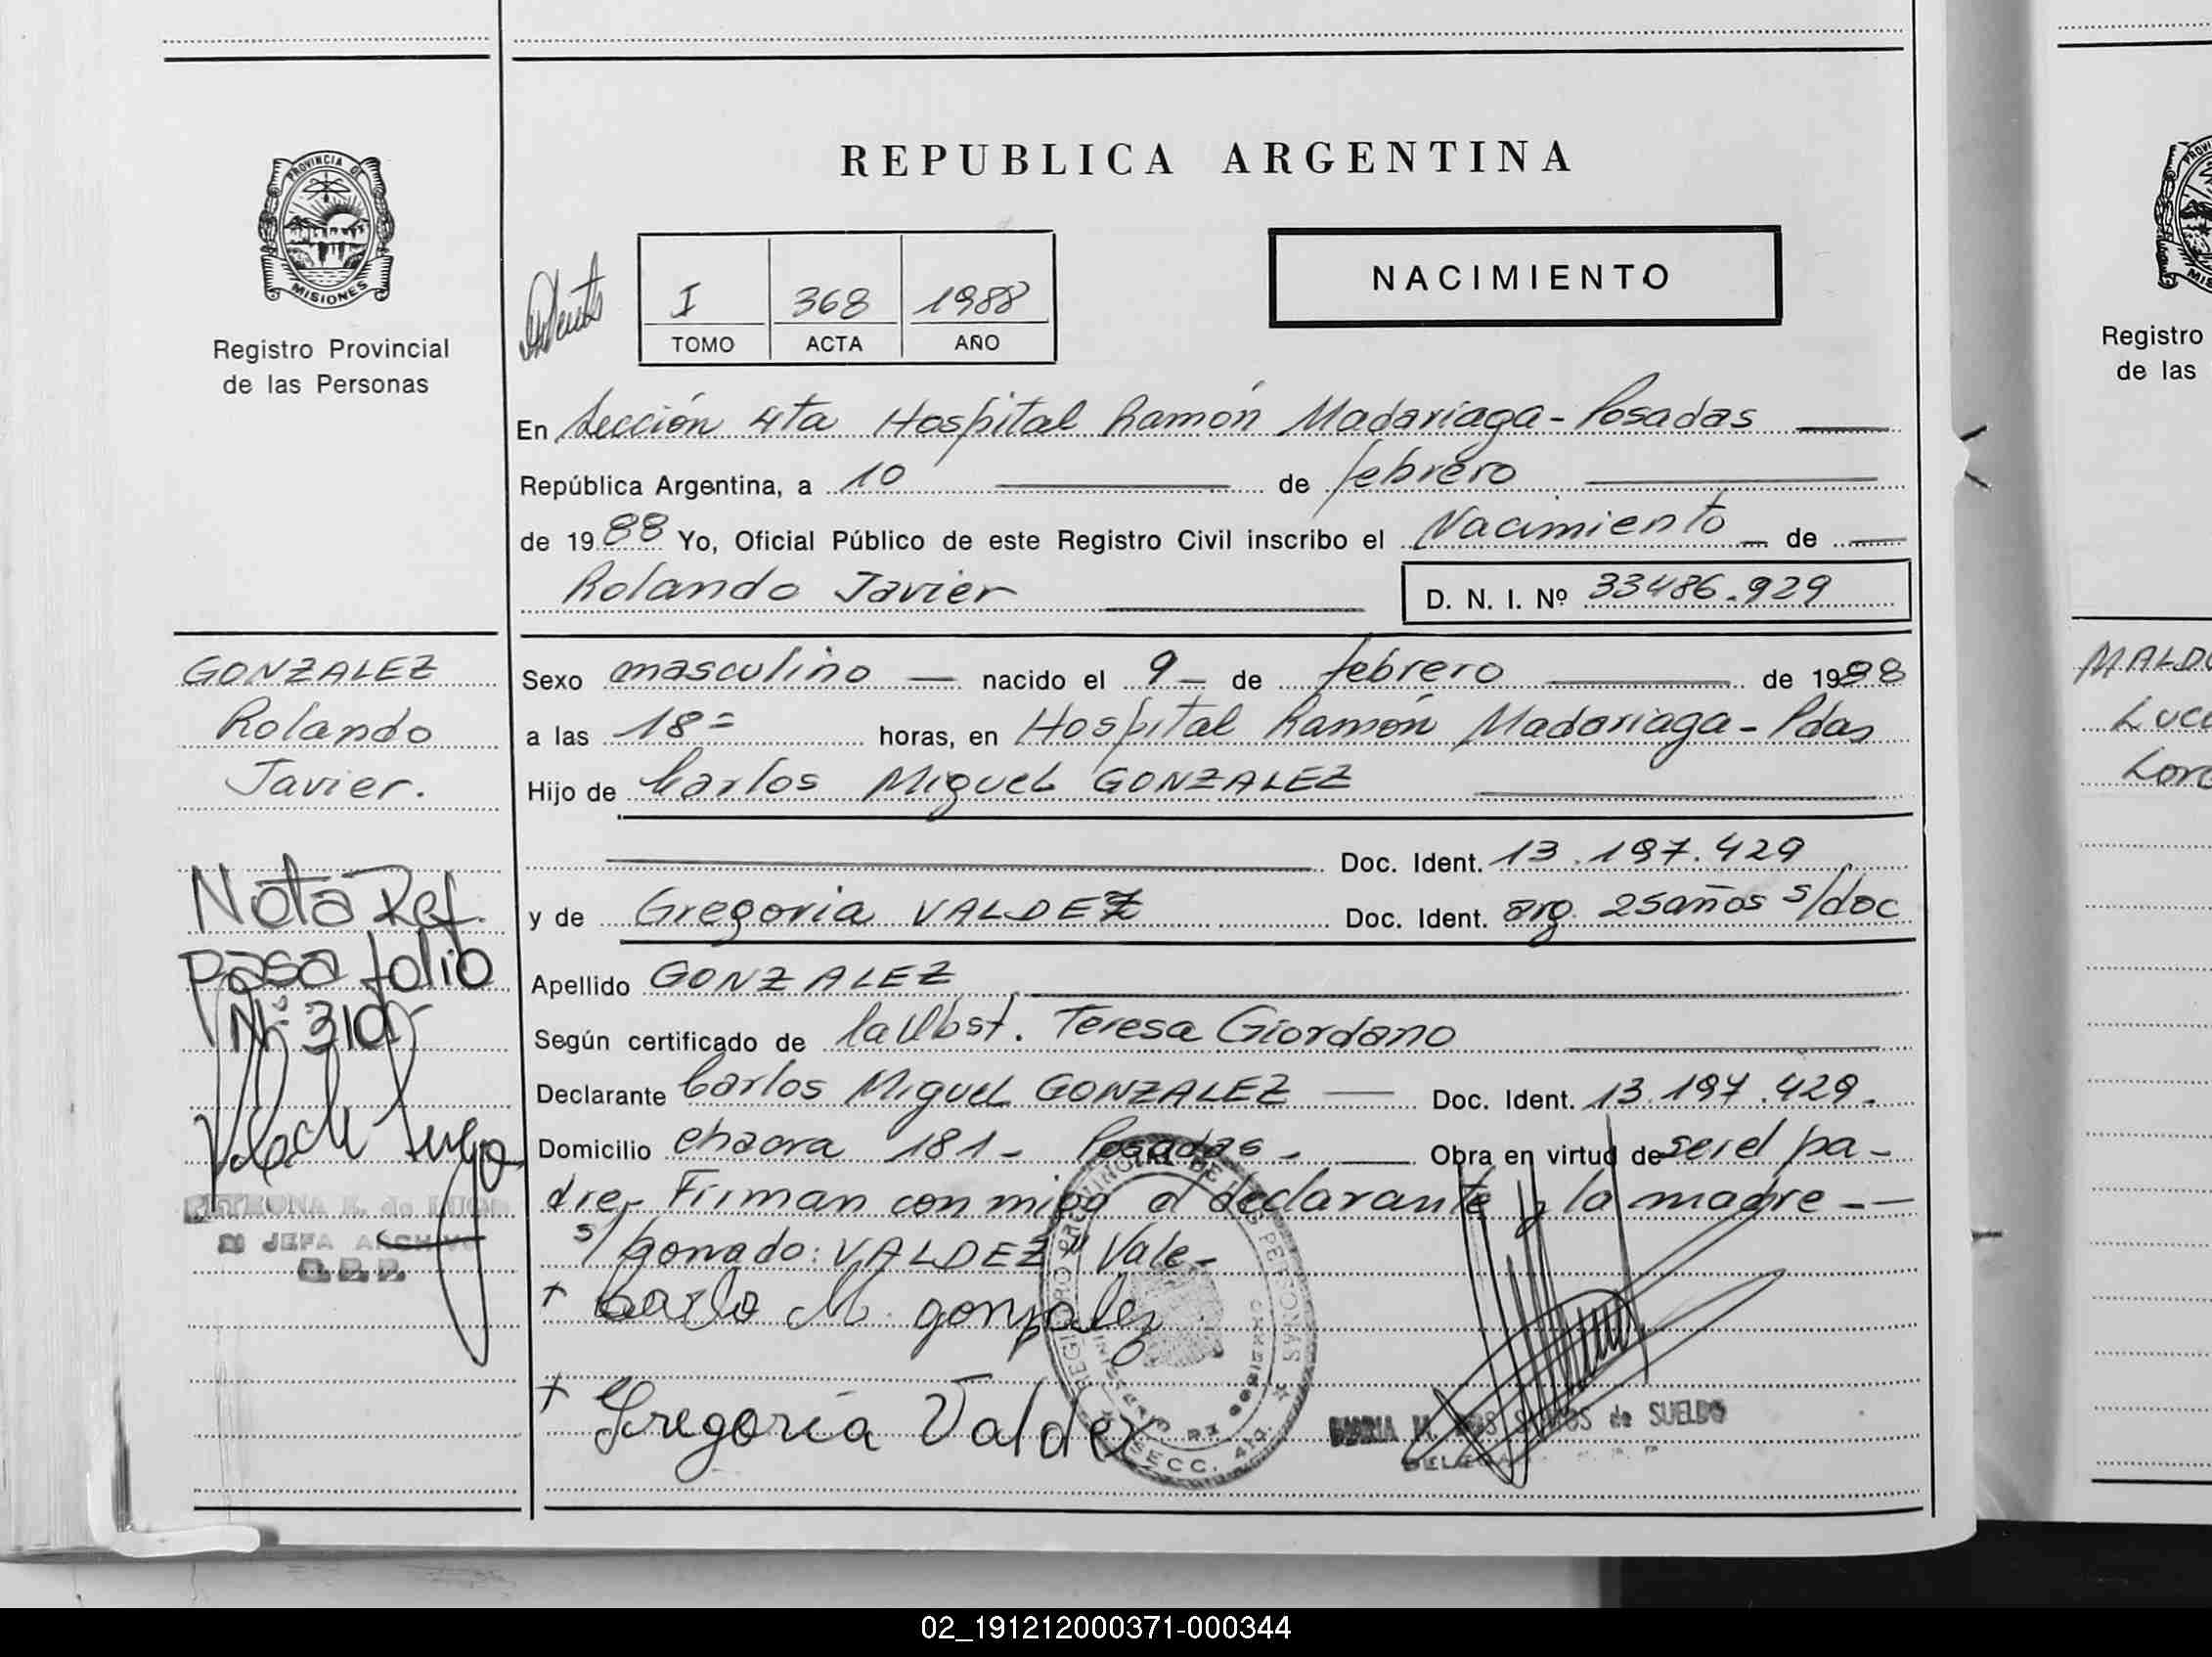 REPUBLICA ARGENTINA
PROVINCIA DE
MISIONES
Registro Provincial
de las Personas
I 368 1988
TOMO ACTA AÑO
NACIMIENTO
En Sección 4ta Hospital Ramón Madariaga - Posadas
República Argentina, a 10 de febrero
de 1988 Yo, Oficial Público de este Registro Civil inscribo el Nacimiento de
Rolando Javier D. N. I. Nº 33486.929
GONZALEZ
Rolando
Javier.
Sexo masculino nacido el 9 de febrero de 1988
a las 18= horas, en Hospital Ramón Madariaga - Pdas
Hijo de Carlos Miguel GONZALEZ
Doc. Ident. 13.197.429
y de Gregoria VALDEZ Doc. Ident. arg. 25años s/doc
Apellido GONZALEZ
Según certificado de la Obst. Teresa Giordano
Declarante Carlos Miguel GONZALEZ Doc. Ident. 13.197.429.
Domicilio chacra 181 - Posadas - Obra en virtud de ser el pa-
dre, Firman conmigo el declarante y la madre --
s/ borrado: VALDEZ" Vale-
+ Carlo M. gonzalez
+ Gregoria Valdez
Nota Ref.
pasa folio
Nº 310
PETRONA E. de LUGO
JEFA ARCHIVO
REGISTRO PROVINCIAL DE LAS PERSONAS
SECC. 4ta.
MARIA M. DOS SANTOS de SUELDO
Registro
de las
02_191212000371-000344